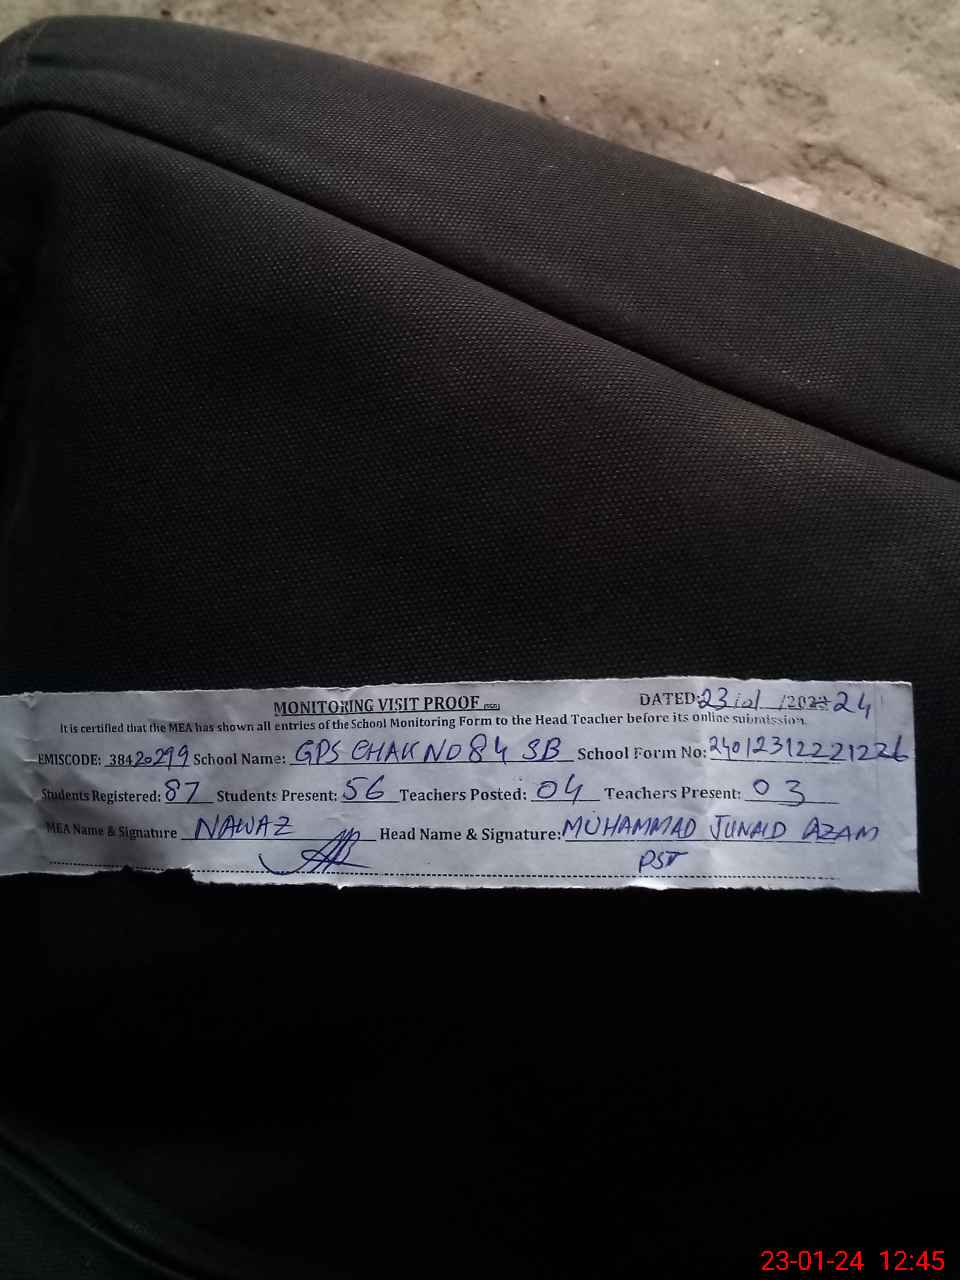 MONITORING VISIT PROOF DATED: 23/01/2023 24
It is certified that the MEA has shown all entries of the School Monitoring Form to the Head Teacher before its online submission.
EMISCODE: 38420299 School Name: GPS CHAK NO 84 SB School Form No: 24012312221226
Students Registered: 87 Students Present: 56 Teachers Posted: 04 Teachers Present: 03
MEA Name & Signature NAWAZ Head Name & Signature: MUHAMMAD JUNAID AZAM
PST
23-01-24 12:45